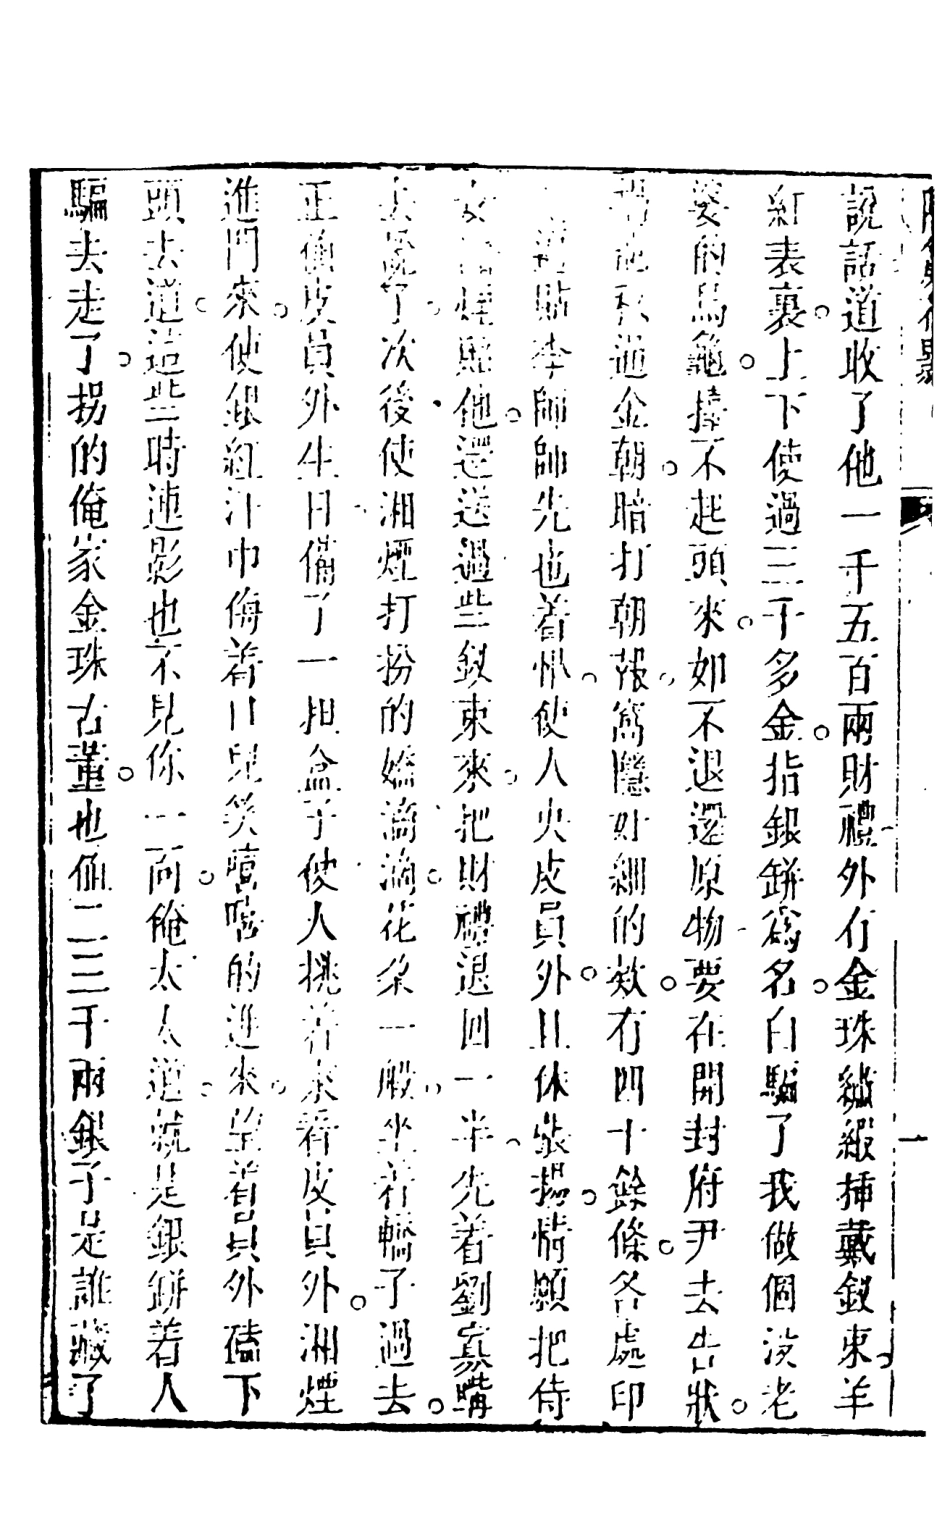 說話道收了他一千五百兩財禮外有金珠繡緞插戴釵束羊
紅表裏上下使過三千多金指銀鉼爲名白騙了我做個沒老
婆的烏龜擡不起頭來如不退還原物要在開封府尹去告狀
道金朝暗打朝報窩隱奸細的款有四十餘條各處印
貼李師師先也着忙使人央皮員外且休張揚情願把侍
女湘煙賠他還送過些釵束來把財禮退回一半先着劉寡嘴
去說了次後使湘煙打扮的嬌滴滴花朵一般坐着轎子過去
正值皮員外生日備了一担盒子使人挑着來看皮員外湘煙
進門來使銀紅汁巾侮着口兒笑嘻嘻的進來望着員外磕下
頭去道這些時連影也不見你一向俺太太道就是銀鉼着人
騙去走了拐的俺家金珠古董也值二三千兩銀子是誰藏了